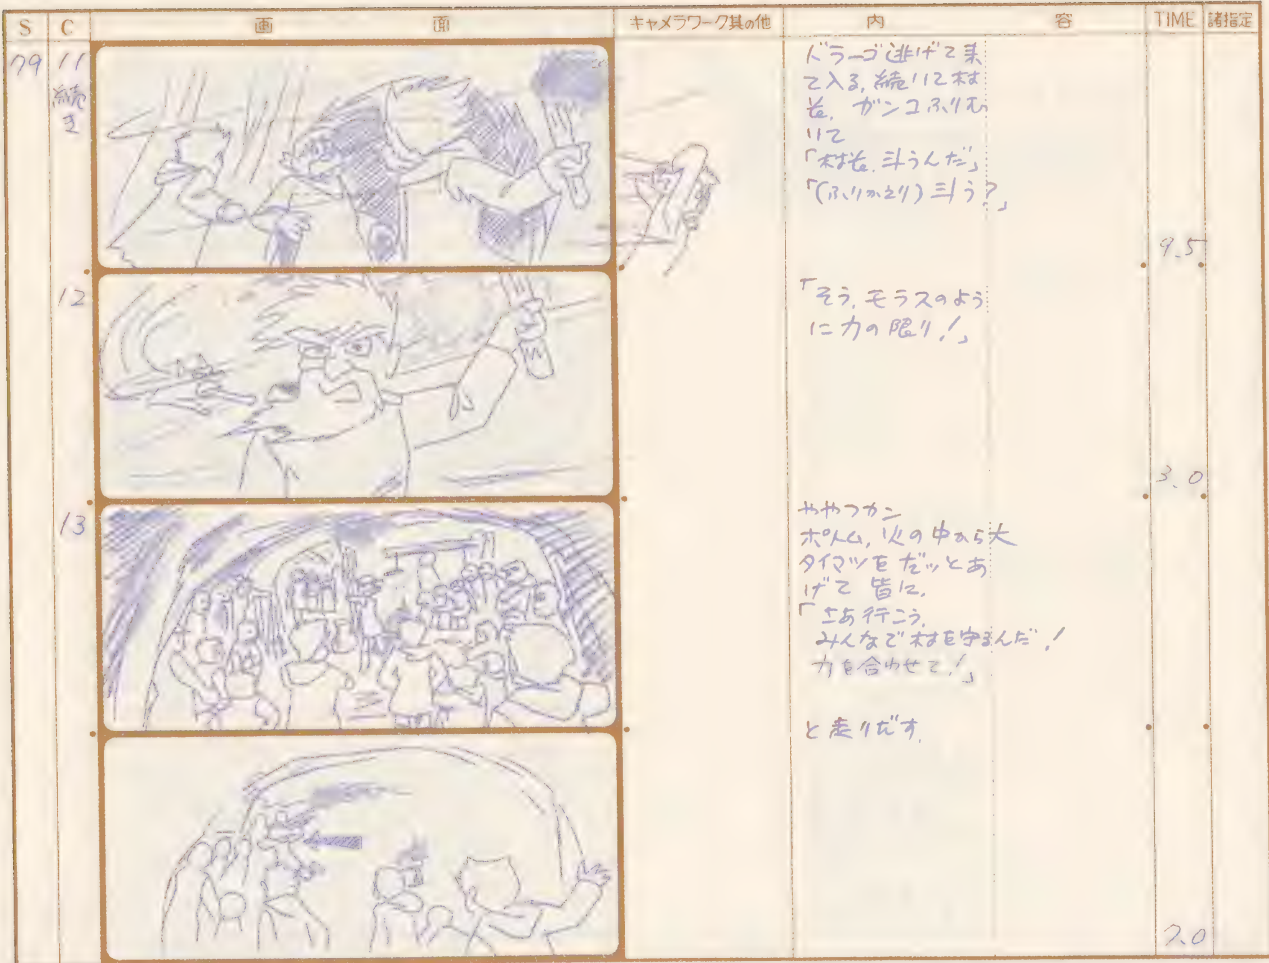 S C 画面 キャメラワーク其の他 内容 TIME 諸指定
79 11
続き
ドラーゴ逃げて来
て入る,続いて村
長. ガンコふりむ
いて
「村長.斗うんだ」
「(ふりかえり)斗う?」
9.5
12
「そう,モラスのよう
に力の限り!」
3.0
13
ややフカン
ホルム,火の中から大
タイマツをだッとあ
げて 皆に,
「さあ行こう,
みんなで村を守るんだ!
力を合わせて!」
と走りだす.
7.0